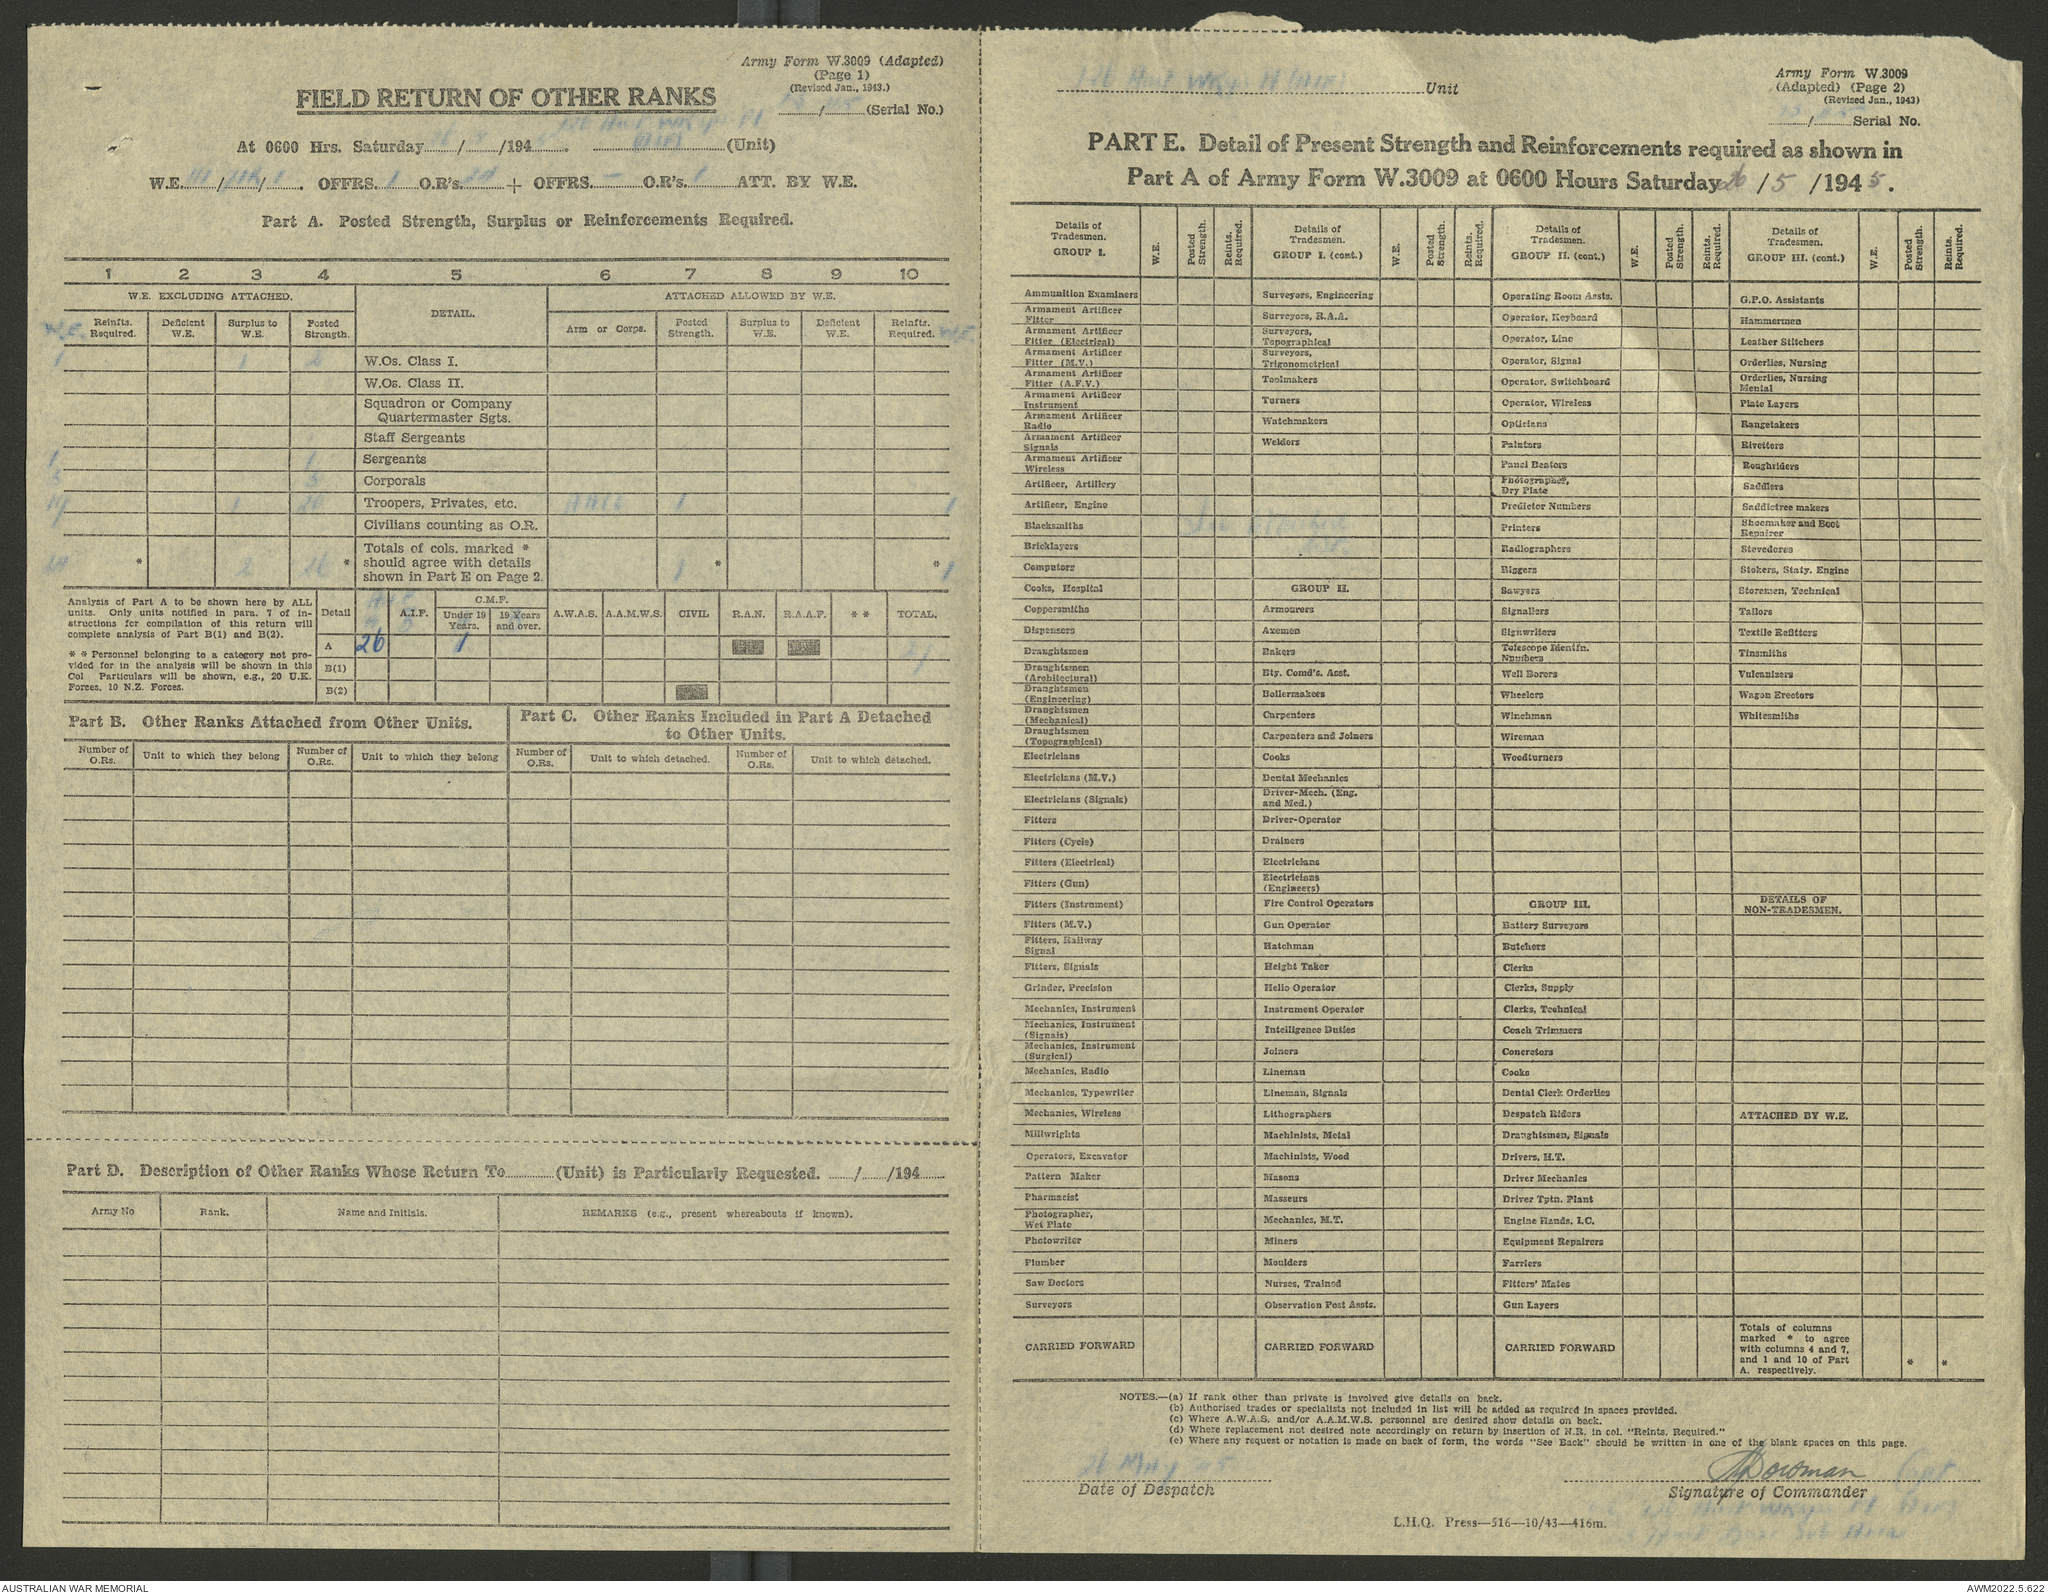 Army Form W.3009 (Adapted)
(Page 1)
(Revised Jan., 1943.)
FIELD RETURN OF OTHER RANKS
/45 (Serial No.)
At 0600 Hrs. Saturday 26/5/1945. (AIF) (Unit)
W.E. III/ / . OFFRS. 1 O.R's. 24 + OFFRS. — O.R's. 1 ATT. BY W.E.
Part A. Posted Strength, Surplus or Reinforcements Required.
1 2 3 4 5 6 7 8 9 10
W.E. EXCLUDING ATTACHED. DETAIL. ATTACHED ALLOWED BY W.E.
W.E. Reinfts. Required. Deficient W.E. Surplus to W.E. Posted Strength. Arm or Corps. Posted Strength. Surplus to W.E. Deficient W.E. Reinfts. Required. W.E.
1 1 2 W.Os. Class I.
W.Os. Class II.
Squadron or Company Quartermaster Sgts.
Staff Sergeants
1 1 Sergeants
3 3 Corporals
19 1 20 Troopers, Privates, etc. AACC 1 1
Civilians counting as O.R.
24 * 2 26 * Totals of cols. marked * should agree with details shown in Part E on Page 2. 1 * * 1
Analysis of Part A to be shown here by ALL units. Only units notified in para. 7 of instructions for compilation of this return will complete analysis of Part B(1) and B(2).
* * Personnel belonging to a category not provided for in the analysis will be shown in this Col Particulars will be shown, e.g., 20 U.K. Forces, 10 N.Z. Forces.
Detail A.I.F. C.M.F. Under 19 Years. 19 Years and over. A.W.A.S. A.A.M.W.S. CIVIL R.A.N. R.A.A.F. * * TOTAL.
A 26 1 27
B(1)
B(2)
Part B. Other Ranks Attached from Other Units.
Part C. Other Ranks Included in Part A Detached to Other Units.
Number of O.Rs. Unit to which they belong Number of O.Rs. Unit to which they belong Number of O.Rs. Unit to which detached. Number of O.Rs. Unit to which detached.
Part D. Description of Other Ranks Whose Return To (Unit) is Particularly Requested. / /194
Army No Rank. Name and Initials. REMARKS (e.g., present whereabouts if known).
126 Amt Wksps Pl (AIF) Unit
Army Form W.3009
(Adapted) (Page 2)
(Revised Jan., 1943)
/45 Serial No.
PART E. Detail of Present Strength and Reinforcements required as shown in
Part A of Army Form W.3009 at 0600 Hours Saturday 26/5/1945.
Details of Tradesmen. GROUP I. W.E. Posted Strength. Reints. Required.
Ammunition Examiners
Armament Artificer Fitter
Armament Artificer Fitter (Electrical)
Armament Artificer Fitter (M.V.)
Armament Artificer Fitter (A.F.V.)
Armament Artificer Instrument
Armament Artificer Radio
Armament Artificer Signals
Armament Artificer Wireless
Artificer, Artillery
Artificer, Engine
Blacksmiths
See attached
list.
Bricklayers
Computors
Cooks, Hospital
Coppersmiths
Dispensers
Draughtsmen
Draughtsmen (Architectural)
Draughtsmen (Engineering)
Draughtsmen (Mechanical)
Draughtsmen (Topographical)
Electricians
Electricians (M.V.)
Electricians (Signals)
Fitters
Fitters (Cycle)
Fitters (Electrical)
Fitters (Gun)
Fitters (Instrument)
Fitters (M.V.)
Fitters, Railway Signal
Fitters, Signals
Grinder, Precision
Mechanics, Instrument
Mechanics, Instrument (Signals)
Mechanics, Instrument (Surgical)
Mechanics, Radio
Mechanics, Typewriter
Mechanics, Wireless
Millwrights
Operators, Excavator
Pattern Maker
Pharmacist
Photographer, Wet Plate
Photowriter
Plumber
Saw Doctors
Surveyors
CARRIED FORWARD
Details of Tradesmen. GROUP I. (cont.) W.E. Posted Strength. Reints. Required.
Surveyors, Engineering
Surveyors, R.A.A.
Surveyors, Topographical
Surveyors, Trigonometrical
Toolmakers
Turners
Watchmakers
Welders
GROUP II.
Armourers
Axemen
Bakers
Bty. Comd's. Asst.
Boilermakers
Carpenters
Carpenters and Joiners
Cooks
Dental Mechanics
Driver-Mech. (Eng. and Med.)
Driver-Operator
Drainers
Electricians
Electricians (Engineers)
Fire Control Operators
Gun Operator
Hatchman
Height Taker
Helio Operator
Instrument Operator
Intelligence Duties
Joiners
Lineman
Lineman, Signals
Lithographers
Machinists, Metal
Machinists, Wood
Masons
Masseurs
Mechanics, M.T.
Miners
Moulders
Nurses, Trained
Observation Post Assts.
CARRIED FORWARD
Details of Tradesmen. GROUP II. (cont.) W.E. Posted Strength. Reints. Required.
Operating Room Assts.
Operator, Keyboard
Operator, Line
Operator, Signal
Operator, Switchboard
Operator, Wireless
Opticians
Painters
Panel Beaters
Photographer, Dry Plate
Predictor Numbers
Printers
Radiographers
Riggers
Sawyers
Signallers
Signwriters
Telescope Identfn. Numbers
Well Borers
Wheelers
Winchman
Wireman
Woodturners
GROUP III.
Battery Surveyors
Butchers
Clerks
Clerks, Supply
Clerks, Technical
Coach Trimmers
Concretors
Cooks
Dental Clerk Orderlies
Despatch Riders
Draughtsmen, Signals
Drivers, H.T.
Driver Mechanics
Driver Tptn. Plant
Engine Hands, I.C.
Equipment Repairers
Farriers
Fitters' Mates
Gun Layers
CARRIED FORWARD
Details of Tradesmen. GROUP III. (cont.) W.E. Posted Strength. Reints. Required.
G.P.O. Assistants
Hammermen
Leather Stitchers
Orderlies, Nursing
Orderlies, Nursing Mental
Plate Layers
Rangetakers
Rivetters
Roughriders
Saddlers
Saddletree makers
Shoemaker and Boot Repairer
Stevedores
Stokers, Staty. Engine
Storemen, Technical
Tailors
Textile Refitters
Tinsmiths
Vulcanizers
Wagon Erectors
Whitesmiths
DETAILS OF NON-TRADESMEN.
ATTACHED BY W.E.
Totals of columns marked * to agree with columns 4 and 7, and 1 and 10 of Part A. respectively. * *
NOTES.—(a) If rank other than private is involved give details on back.
(b) Authorised trades or specialists not included in list will be added as required in spaces provided.
(c) Where A.W.A.S. and/or A.A.M.W.S. personnel are desired show details on back.
(d) Where replacement not desired note accordingly on return by insertion of N.R. in col. "Reints. Required."
(e) Where any request or notation is made on back of form, the words "See Back" should be written in one of the blank spaces on this page.
26 May 45
Date of Despatch
Bowman Capt
Signature of Commander
L.H.Q. Press—516—10/43—416m.
AUSTRALIAN WAR MEMORIAL
AWM2022.5.622